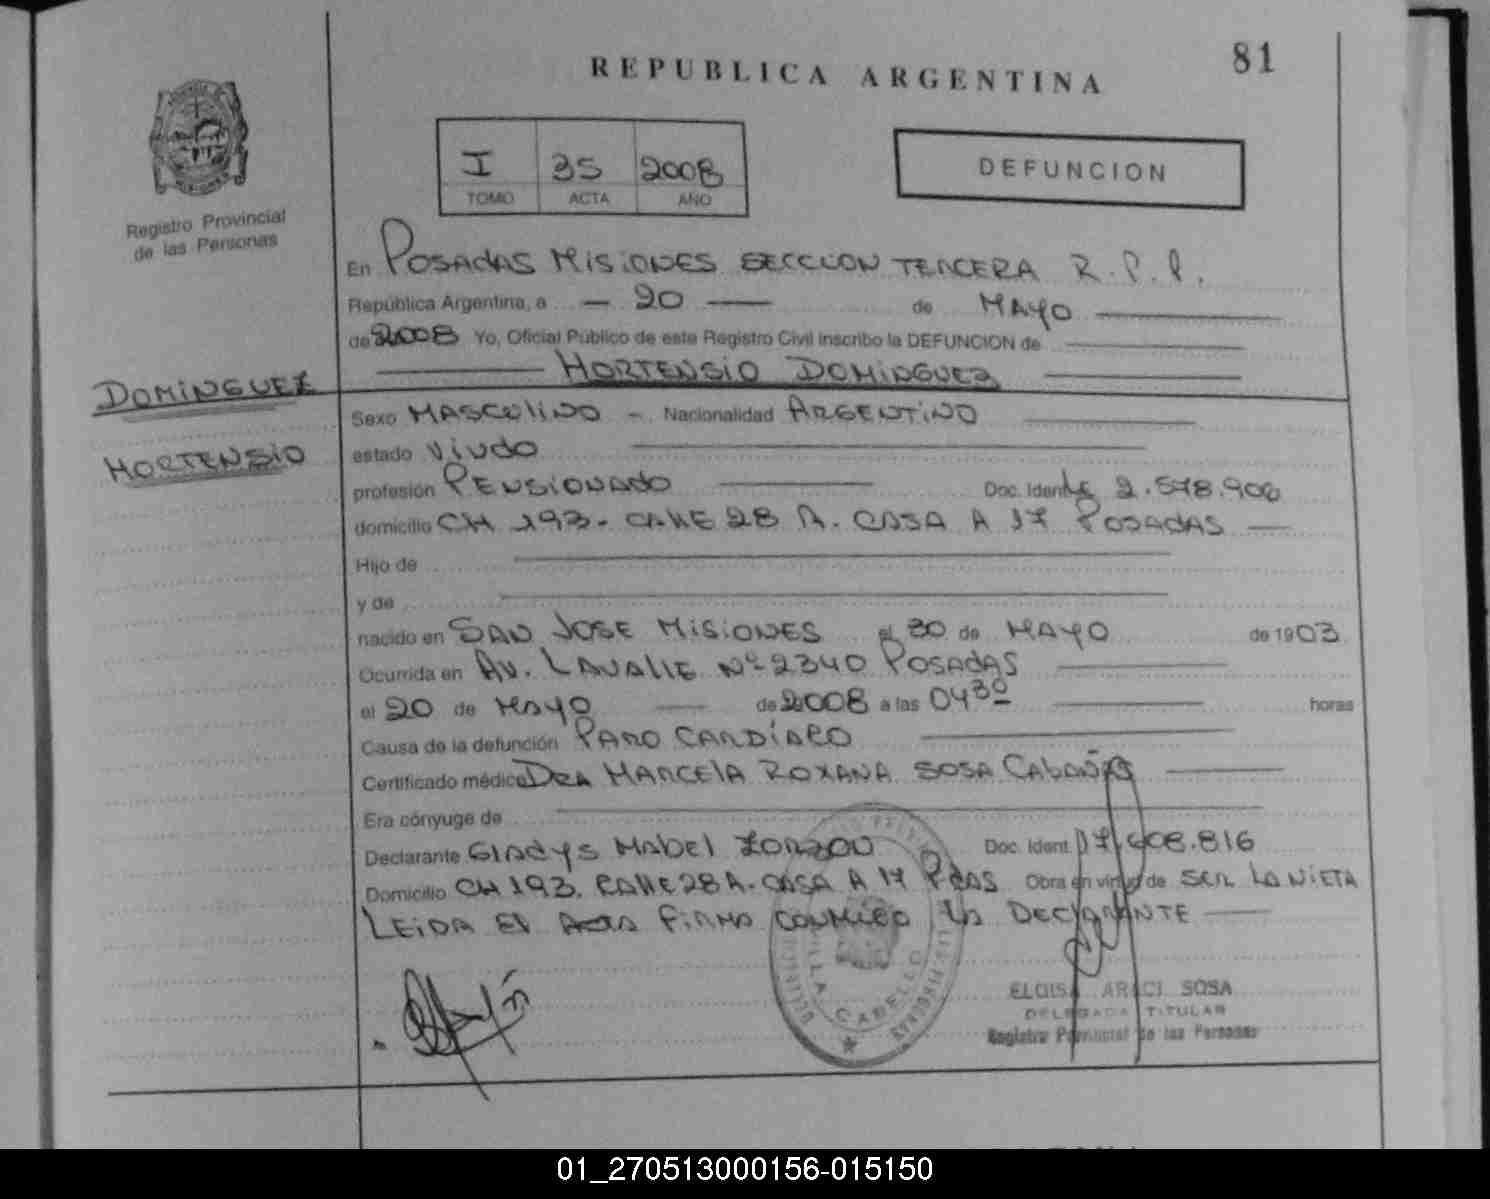 81
REPUBLICA ARGENTINA
I 35 2008
TOMO ACTA AÑO
DEFUNCION
Registro Provincial
de las Personas
En POSADAS MISIONES SECCION TERCERA R.P.P.
República Argentina, a — 20 — de MAYO
de 2008 Yo, Oficial Público de este Registro Civil inscribo la DEFUNCION de
HORTENSIO DOMINGUEZ
DOMINGUEZ
HORTENSIO
Sexo MASCULINO - Nacionalidad ARGENTINO
estado VIUDO
profesión PENSIONADO Doc. Ident.
domicilio CH 193. CALLE 28 A. CASA A 17 POSADAS —
Hijo de
y de
nacido en SAN JOSE MISIONES el 30 de MAYO de 1903
Ocurrida en AV. LAVALLE Nº 2340 POSADAS
el 20 de MAYO de 2008 a las 04 30 horas
Causa de la defunción PARO CARDÍACO
Certificado médico DRA MARCELA ROXANA SOSA CABAÑAS
Era cónyuge de
Declarante GLADYS MABEL Doc. Ident.
Domicilio CH 193. CALLE 28 A. CASA A 17 PDAS Obra en virtud de SER LA NIETA
LEIDA EL ACTA FIRMA CONMIGO LA DECLARANTE
VILLA CABELLO
ELOISA ARACI SOSA
DELEGADA TITULAR
Registro Provincial de las Personas
01_270513000156-015150